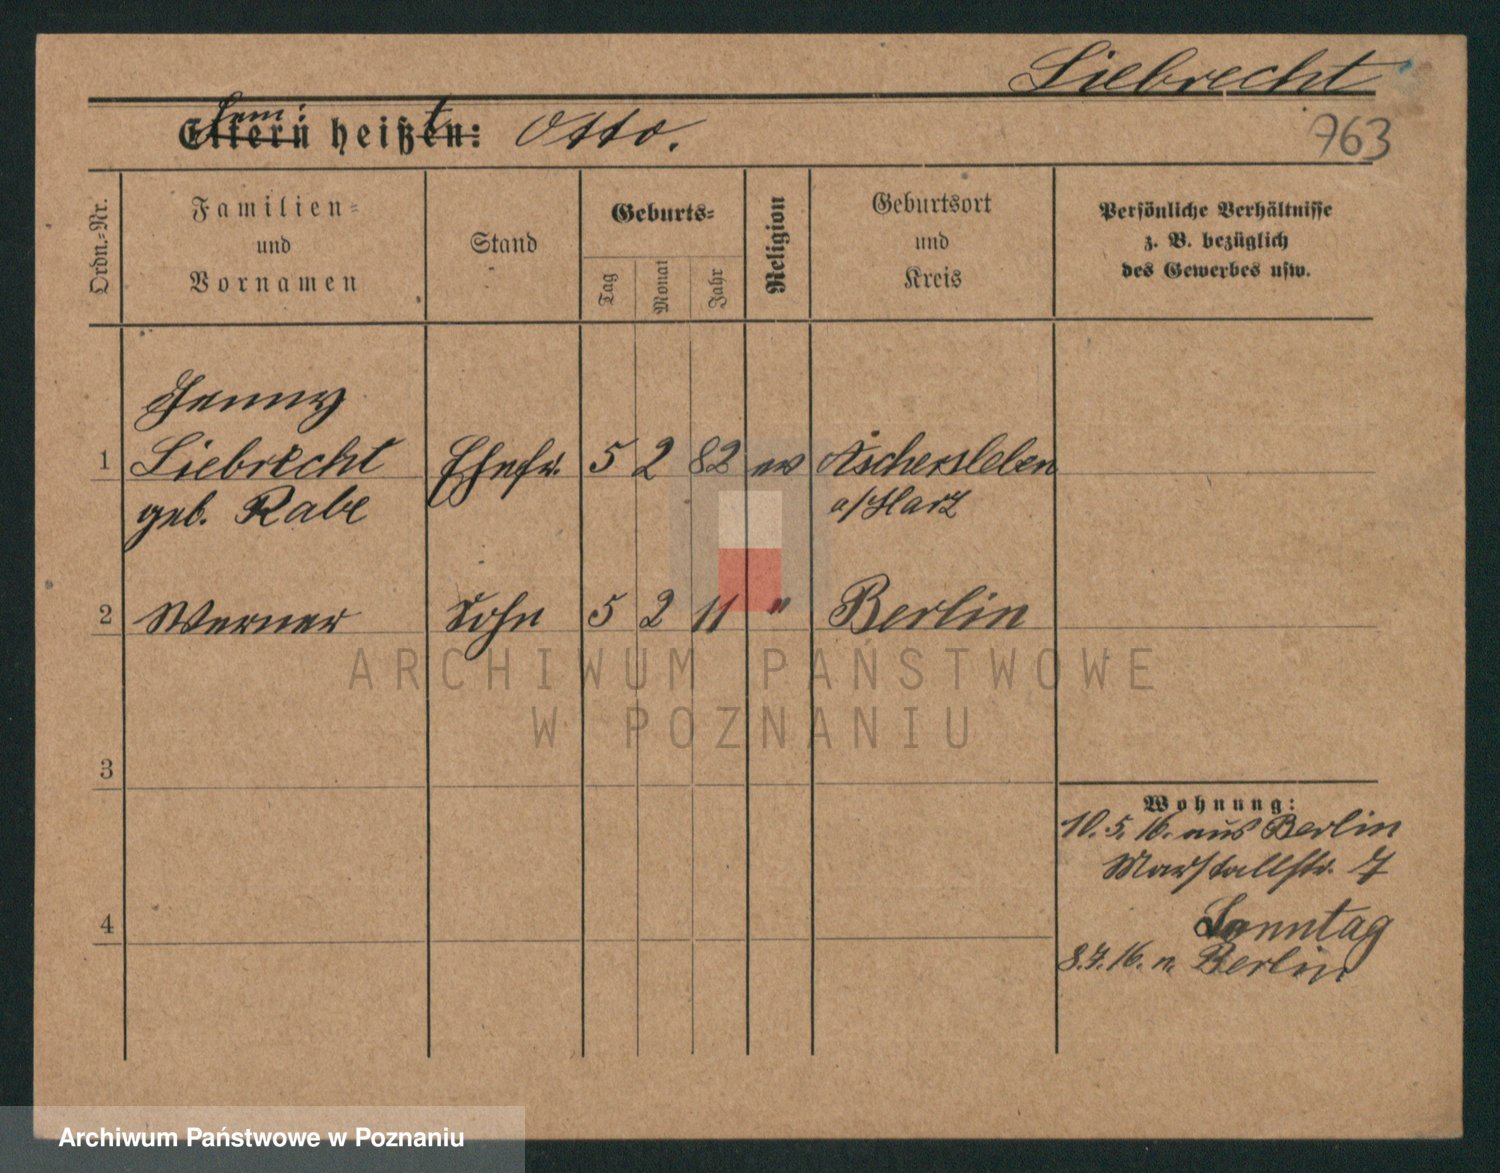 Liebrecht
Eltern heißen: Otto.
763
Ordn.=Nr.
Familien=
und
Vornamen
Stand
Geburts=
Tag
Monat
Jahr
Religion
Geburtsort
und
Kreis
Persönliche Verhältnisse
z. B. bezüglich
des Gewerbes usw.
Jenny
1 Liebrecht Ehefr. 5 2 82 ev Aschersleben
geb. Rabe a/Harz
2 Werner Sohn 5 2 11 " Berlin
ARCHIWUM PAŃSTWOWE
W POZNANIU
3
Wohnung:
10. 5. 16. aus Berlin
Marstallstr. 7
4
Sonntag
8.7.16. n. Berlin
Archiwum Państwowe w Poznaniu